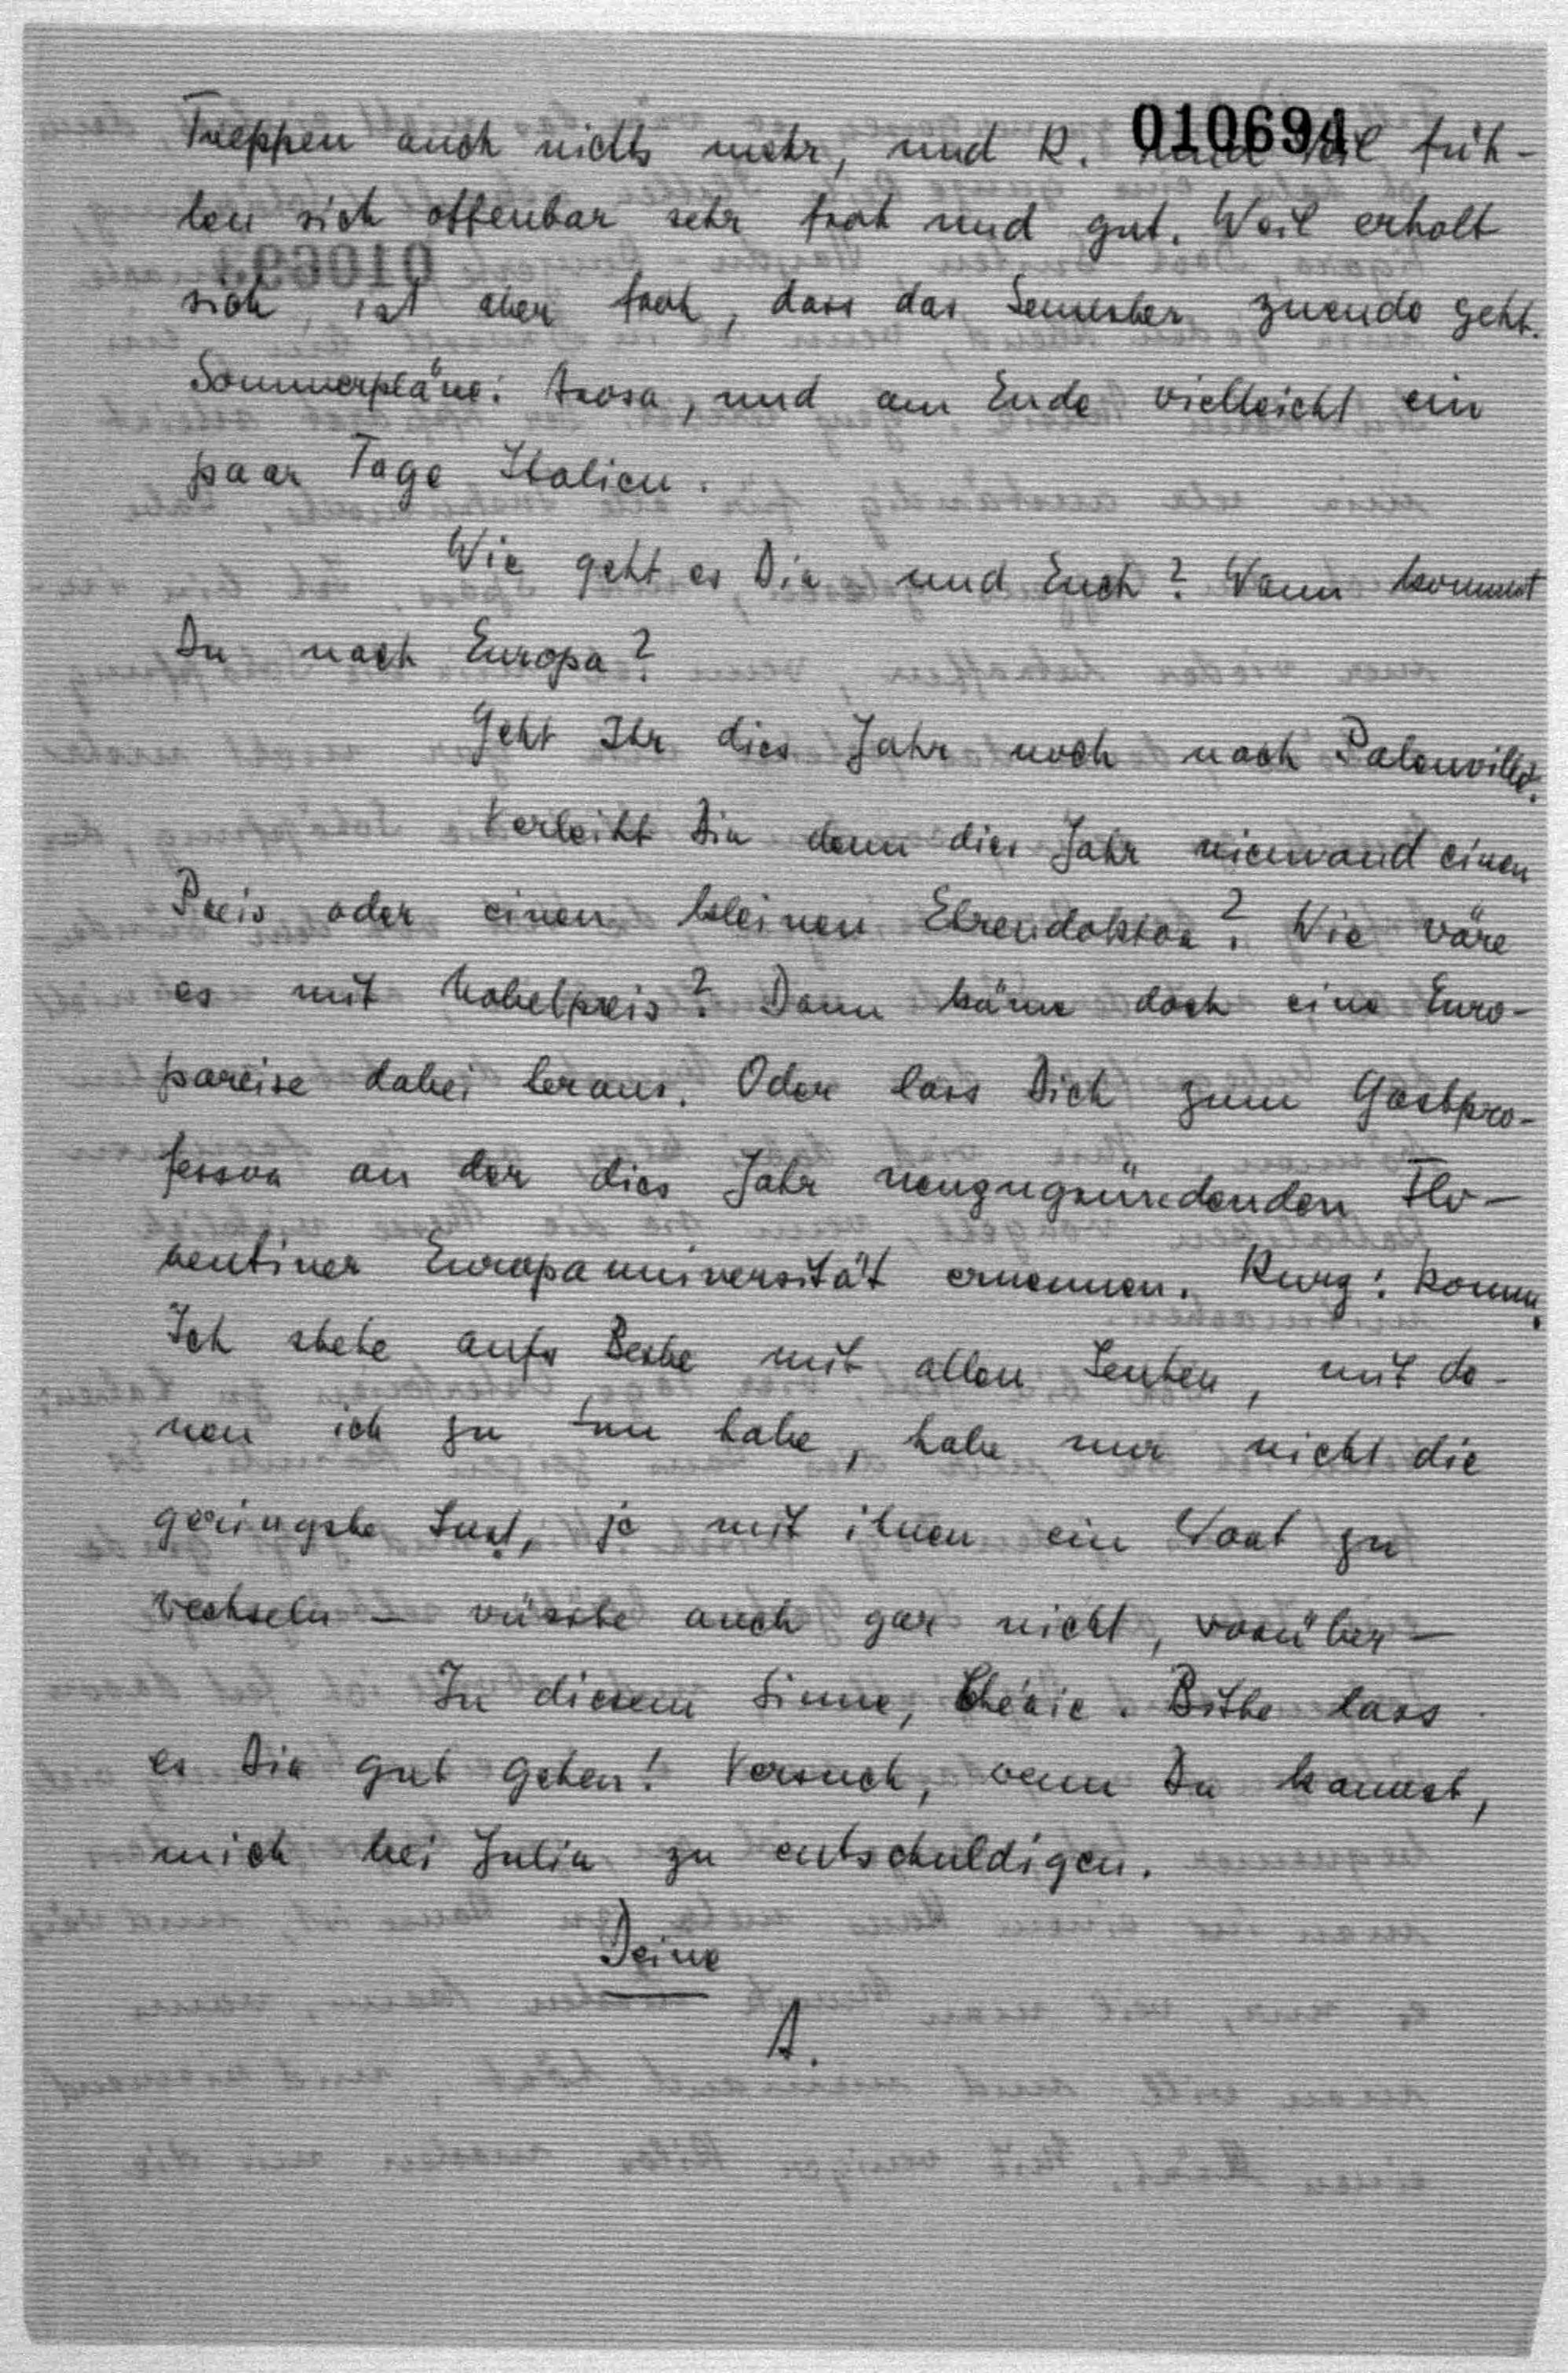 010694
Treppen auch nichts mehr, und R. und füh-
len sich offenbar sehr froh und gut. Weil erholt
sich, ist aber froh, dass das Semester zuende geht.
Sommerpläne: Arosa, und am Ende vielleicht ein
paar Tage Italien.
Wie geht es Dir und Euch? Wann kommst
Du nach Europa?
Geht Ihr dies Jahr noch nach Palenville.
Verleiht Dir denn dies Jahr niemand einen
Preis oder einen kleinen Ehrendoktor? Wie wäre
es mit Nobelpreis? Dann käme doch eine Euro-
pareise dabei heraus. Oder lass Dich zum Gastpro-
fessor an der dies Jahr neuzugründenden Flo-
rentiner Europauniversität ernennen. Kurz: komm.
Ich stehe aufs Beste mit allen Leuten, mit de-
nen ich zu tun habe, habe nur nicht die
geringste Lust, je mit ihnen ein Wort zu
wechseln – wüsste auch gar nicht, worüber –
In diesem Sinne, Chérie. Bitte lass
es Dir gut gehen! Versuch, wenn Du kannst,
mich bei Julia zu entschuldigen.
Deine
A.